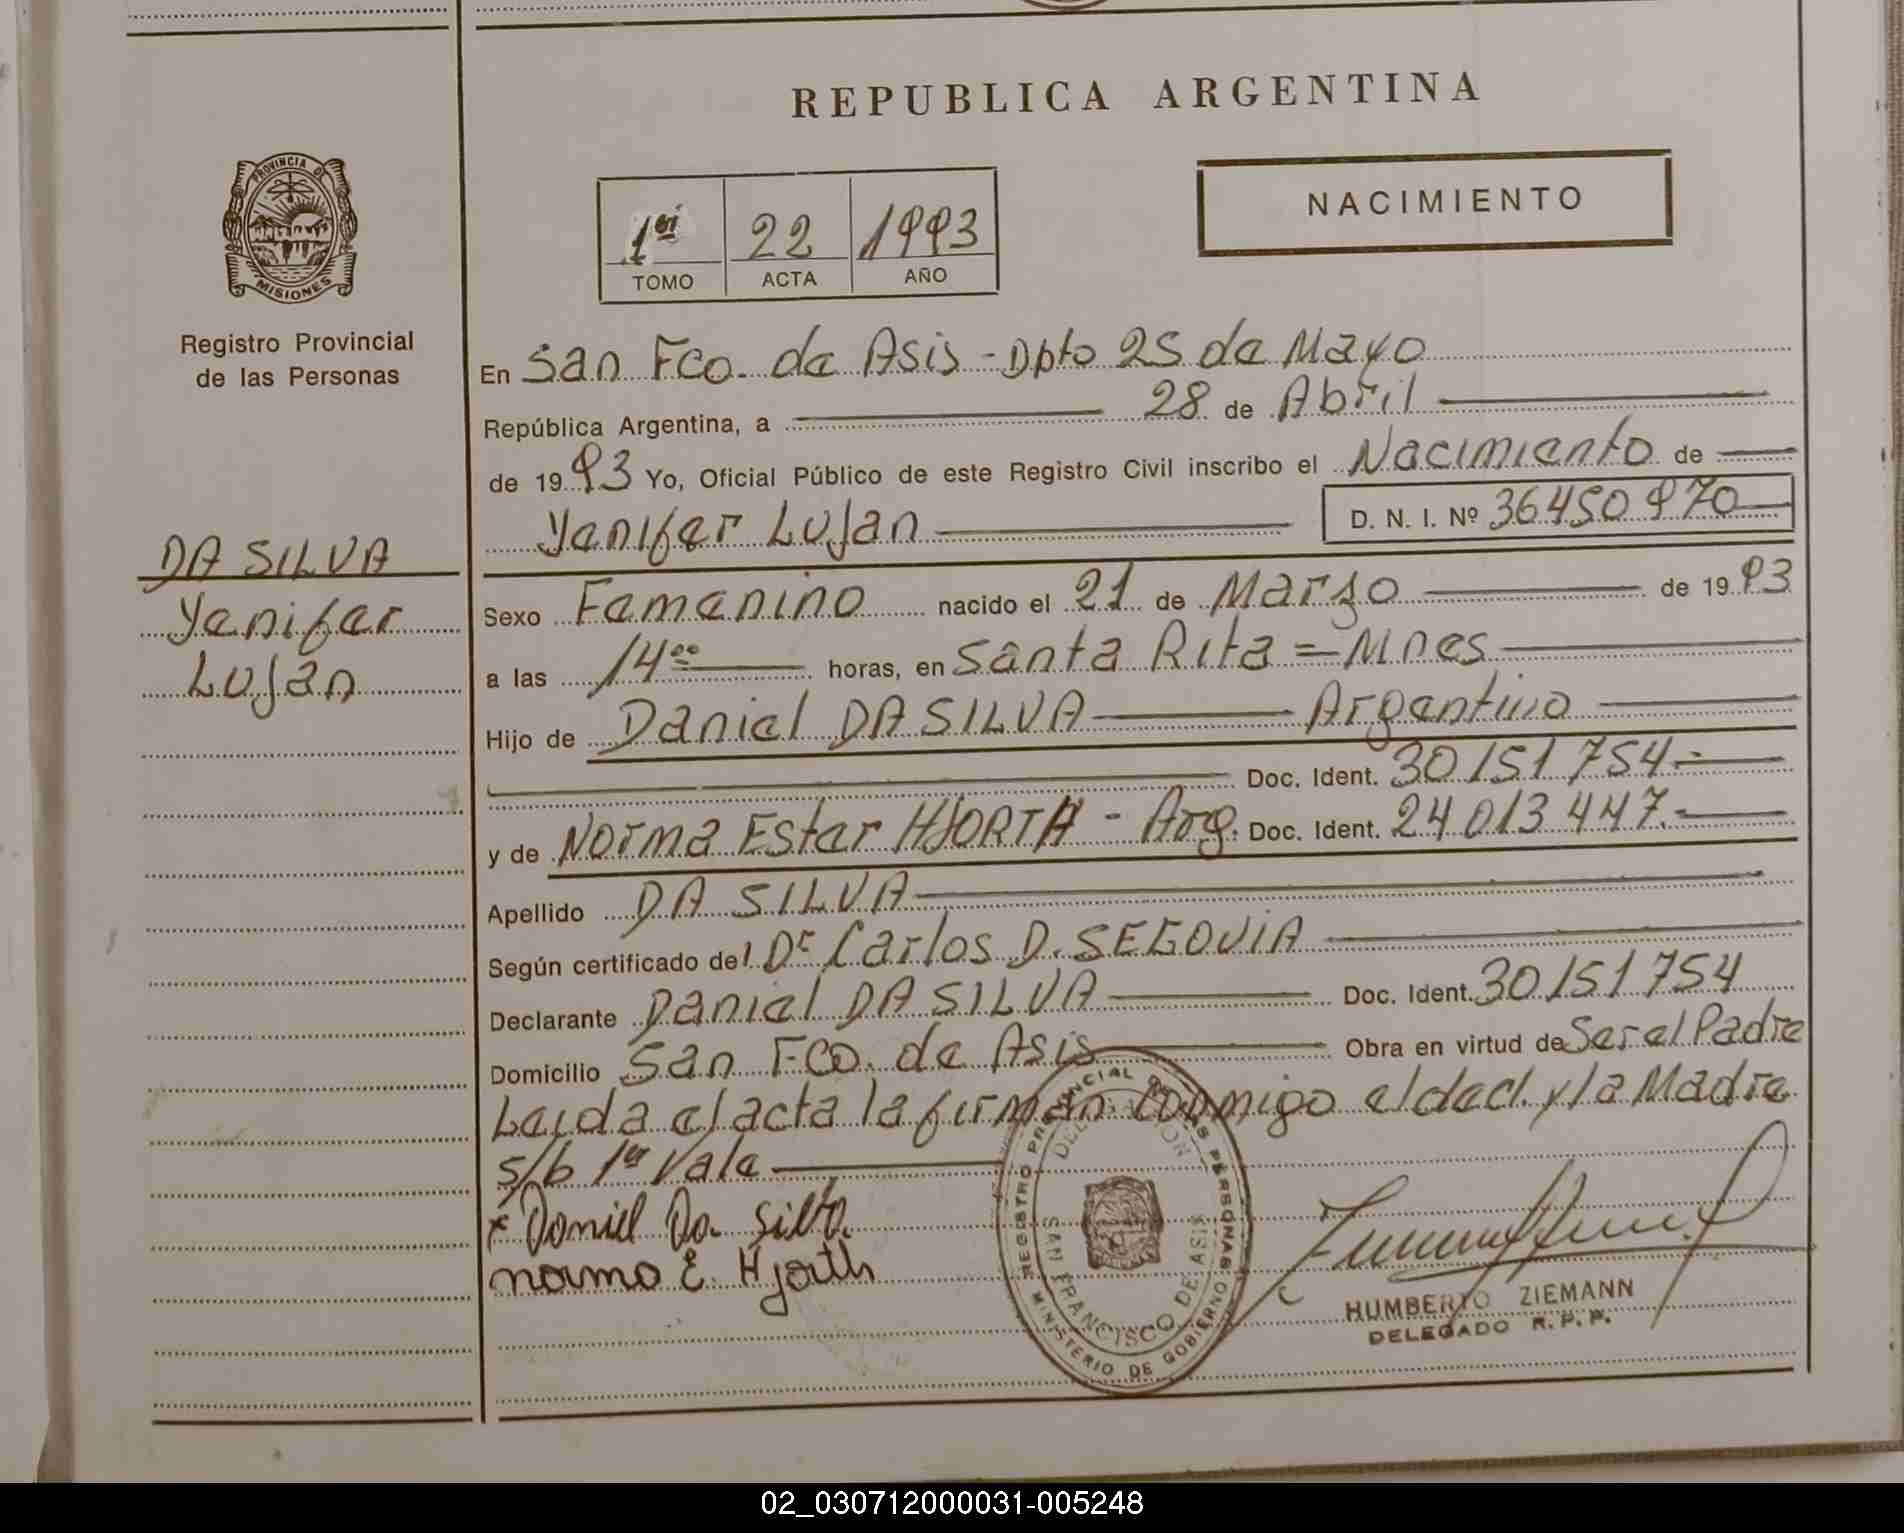 REPUBLICA ARGENTINA
PROVINCIA D
MISIONES
Registro Provincial
de las Personas
1er 22 1993
TOMO ACTA AÑO
NACIMIENTO
En San Fco. de Asis - Dpto 25 de Mayo
República Argentina, a 28 de Abril
de 1993 Yo, Oficial Público de este Registro Civil inscribo el Nacimiento de
Yenifer Luján D. N. I. Nº 36450970
DA SILVA
Yenifer
Luján
Sexo Femenino nacido el 21 de Marzo de 1993
a las 14 00 horas, en Santa Rita = Mnes
Hijo de Daniel DA SILVA Argentino
Doc. Ident. 30151754.-
y de Norma Ester HJORTH - Arg. Doc. Ident. 24013447.-
Apellido DA SILVA
Según certificado del Dr Carlos D. SEGOVIA
Declarante Daniel DA SILVA Doc. Ident. 30151754
Domicilio San Fco. de Asis Obra en virtud de Ser el Padre
Leida el acta la firman conmigo el decl. y la Madre
s/b 1er Vale
x Daniel Da Silva
norma E. Hjorth
REGISTRO PROVINCIAL DE LAS PERSONAS
DELEGACION
SAN FRANCISCO DE ASIS
MINISTERIO DE GOBIERNO
HUMBERTO ZIEMANN
DELEGADO R.P.P.
02_030712000031-005248